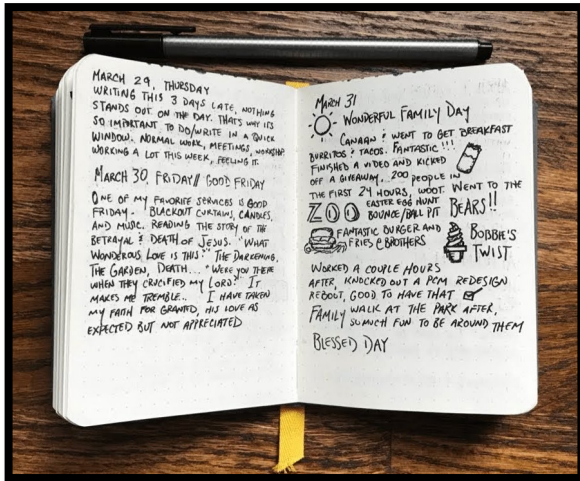 MARCH 29, THURSDAY
WRITING THIS 3 DAYS LATE, NOTHING
STANDS OUT ON THE DAY. THATS WHY ITS
SO IMPORTANT TO DO/WRITE IN A QUICK
WINDOW. NORMAL WORK, MEETINGS, WORKSHOP
WORKING A LOT THIS WEEK, FEELING IT.
MARCH 30, FRIDAY// GOOD FRIDAY
ONE OF MY FAVORITE SERVICES IS GOOD
FRIDAY. BLACKOUT CURTAINS, CANDLES,
AND MUSIC. READING THE STORY OF THE
BETRAYAL & DEATH OF JESUS. "WHAT
WONDEROUS LOVE IS THIS." THE DARKENING.
THE GARDEN, DEATH... "WERE YOU THERE
WHEN THEY CRUCIFIED MY LORD?" IT
MAKES ME TREMBLE... I HAVE TAKEN
MY FAITH FOR GRANTED, HIS LOVE AS
EXPECTED BUT NOT APPRECIATED
MARCH 31
WONDERFUL FAMILY DAY
CANAAN & WENT TO GET BREAKFAST
BURRITOS & TACOS. FANTASTIC!!!
FINISHED A VIDEO AND KICKED
OFF A GIVEAWAY. 200 PEOPLE IN
THE FIRST 24 HOURS, WOOT. WENT TO THE
ZOO EASTER EGG HUNT
BOUNCE/BALL PIT BEARS!!
FANTASTIC BURGER AND
FRIES @ BROTHERS
BOBBIE'S
TWIST
WORKED A COUPLE HOURS
AFTER, KNOCKED OUT A PCM REDESIGN
REBOOT, GOOD TO HAVE THAT
FAMILY WALK AT THE PARK AFTER,
SO MUCH FUN TO BE AROUND THEM
BLESSED DAY